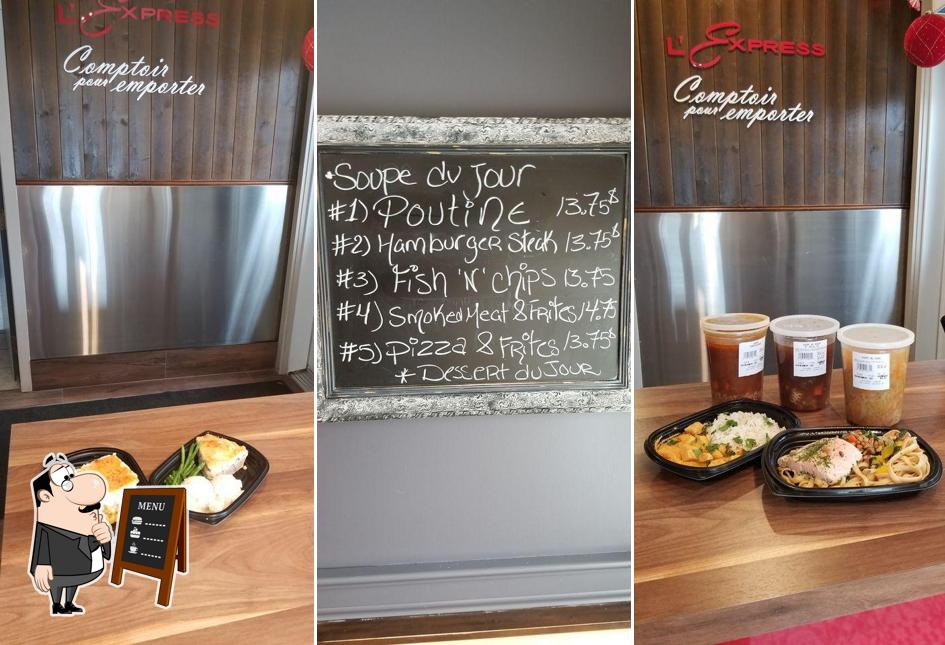 L'EXPRESS
Comptoir
pour emporter
MENU
*Soupe du Jour
#1) Poutine 13.75$
#2) Hamburger Steak 13.75$
#3) Fish 'N' chips 13.75
#4) Smoked Meat & Frites 14.75
#5) Pizza & Frites 13.75$
* Dessert du JOUR
L'EXPRESS
Comptoir
pour emporter